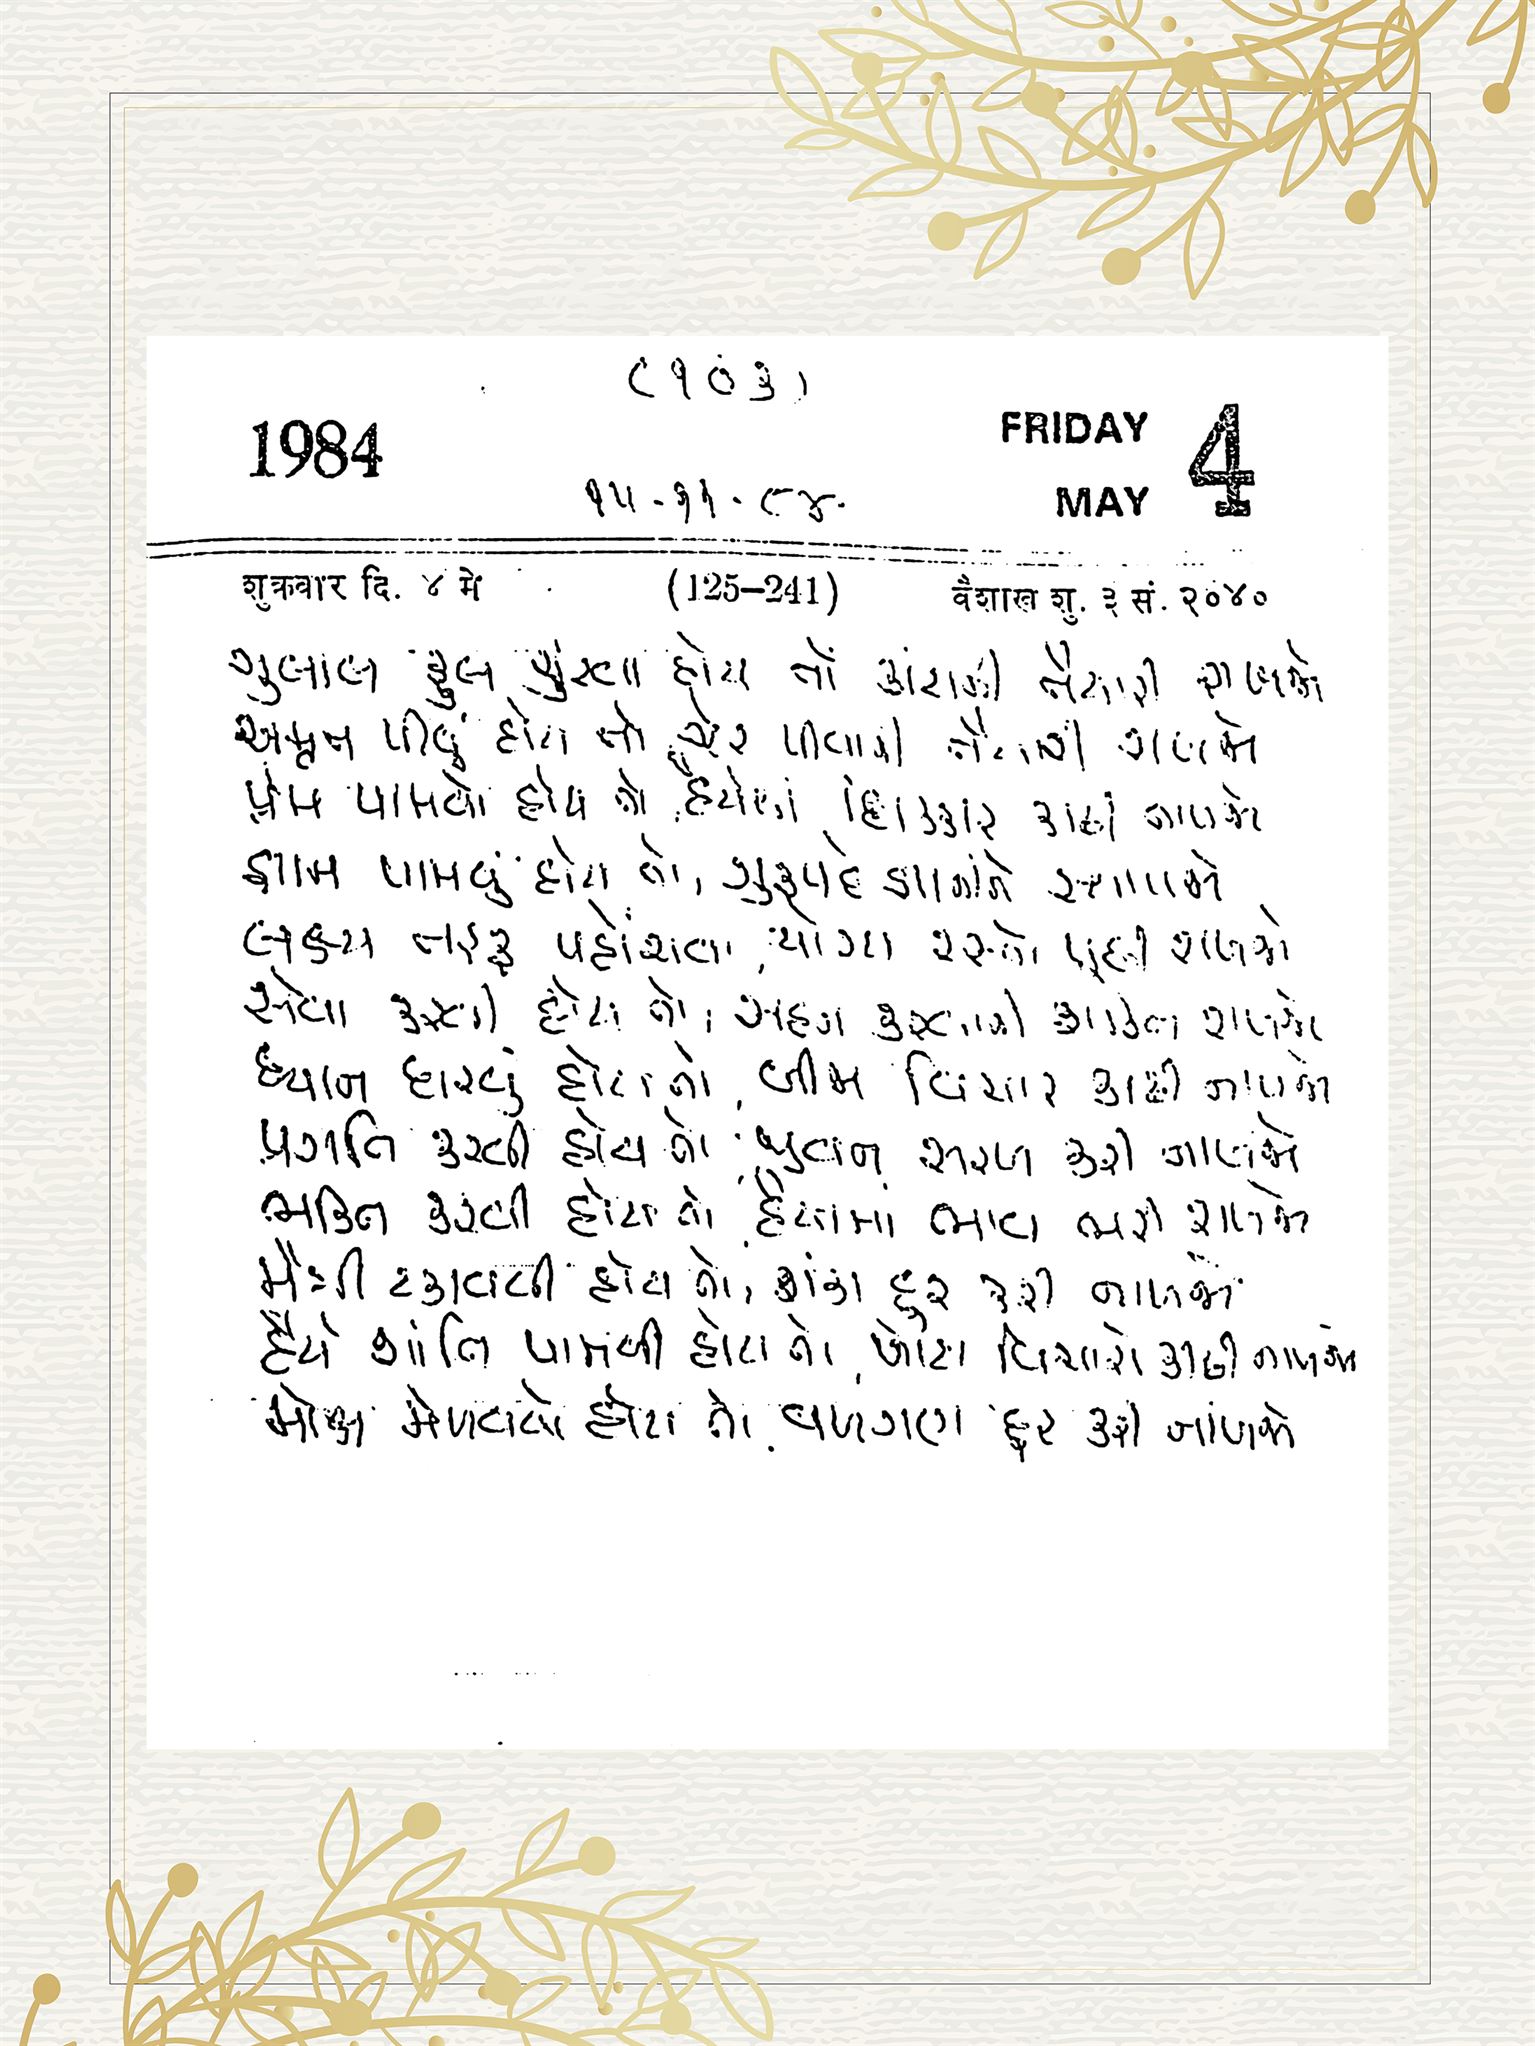 (૧૦૩)
1984
FRIDAY 4
MAY
૧૫-૧૧-૮૪
शुक्रवार दि. ४ मे (125–241) वैशाख शु. ३ सं. २०४०
ગુલાબ ફૂલ ચુંટવા હોય તો કાંટાની તૈયારી રાખજે
અમૃત પીવું હોય તો ઝેર પીવાની તૈયારી રાખજે
પ્રેમ પામવો હોય તો હૈયેથી ધિક્કાર કાઢી નાખજે
જ્ઞાન પામવું હોય તો, ગુરૂપદે જ્ઞાનીને સ્થાપજે
લક્ષ્ય તરફ પહોંચવા, યોગ્ય રસ્તો પૂછી રાખજે
સેવા કરવી હોય તો, સહન કરવાની આદત રાખજે
ધ્યાન ધરવું હોય તો, બીજા વિચાર કાઢી નાખજે
પ્રગતિ કરવી હોય તો જીવન સરળ કરી નાખજે
ભક્તિ કરવી હોય તો હૈયામાં ભાવ ભરી રાખજે
મૈત્રી ટકાવવી હોય તો, શંકા દુર કરી નાખજે
હૈયે શાંતિ પામવી હોય તો, ખોટા વિચારો કાઢી નાખજે
મોક્ષ મેળવવો હોય તો, વળગણ દુર કરી નાંખજે